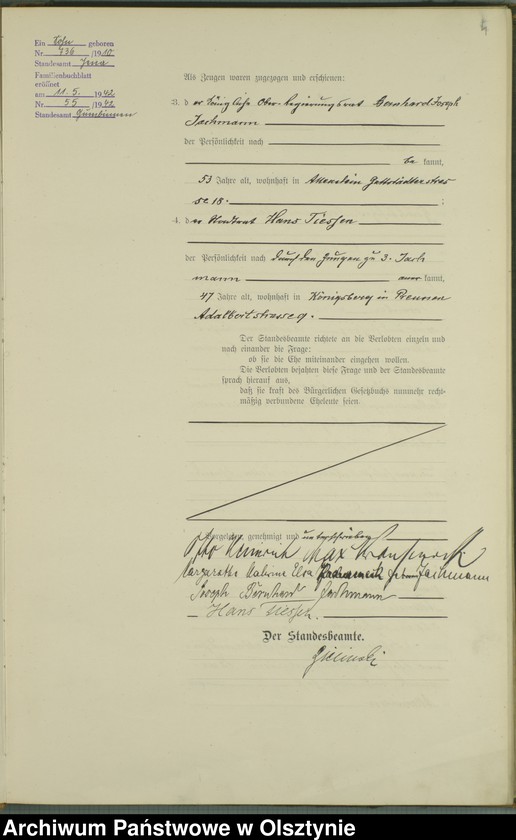 Ein Sohn geboren
Nr. 736 /1910
Standesamt Jena
Familienbuchblatt
eröffnet
am 11. 5. 1942
Nr. 55 /1942
Standesamt Gumbinnen
4
Als Zeugen waren zugezogen und erschienen:
3. der königliche Ober-Regierungsrat Bernhard Joseph
Jachmann
der Persönlichkeit nach
be kannt,
53 Jahre alt, wohnhaft in Allenstein
se 18. ;
4. der Stadtrat Hans Tiessen
der Persönlichkeit nach durch den Zeugen zu 3. Jach
mann kannt,
47 Jahre alt, wohnhaft in Königsberg in Preussen
Adalbertstrasse 9.
Der Standesbeamte richtete an die Verlobten einzeln und
nach einander die Frage:
ob sie die Ehe miteinander eingehen wollen.
Die Verlobten bejahten diese Frage und der Standesbeamte
sprach hierauf aus,
daß sie kraft des Bürgerlichen Gesetzbuchs nunmehr recht-
mäßig verbundene Eheleute seien.
Vorgelesen, genehmigt und unterschrieben
Otto Heinrich Max
Margarethe Elsa geborne Jachmann
Joseph Bernhard Jachmann
Hans Tiessen.
Der Standesbeamte.
Archiwum Państwowe w Olsztynie